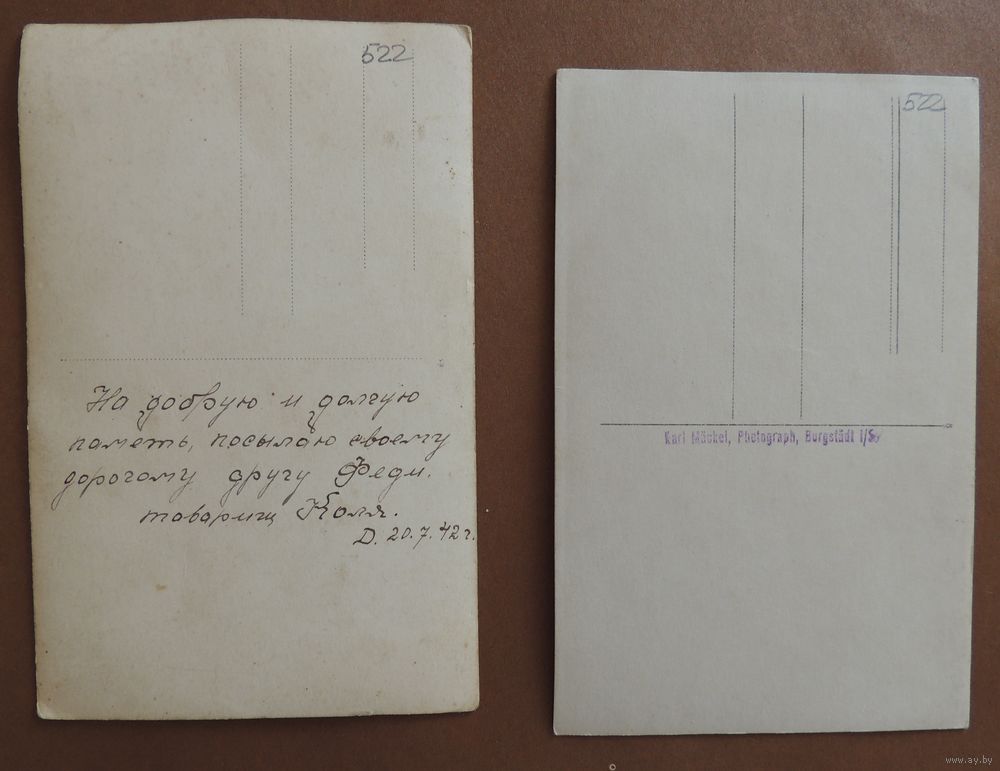 522
На добрую и долгую
паметь, посылаю своему
дорогому другу Феди.
товарищ Коля.
D. 20.7.42 г.
522
Karl Mäckel, Photograph, Burgstädt i/Sa
www.ay.by